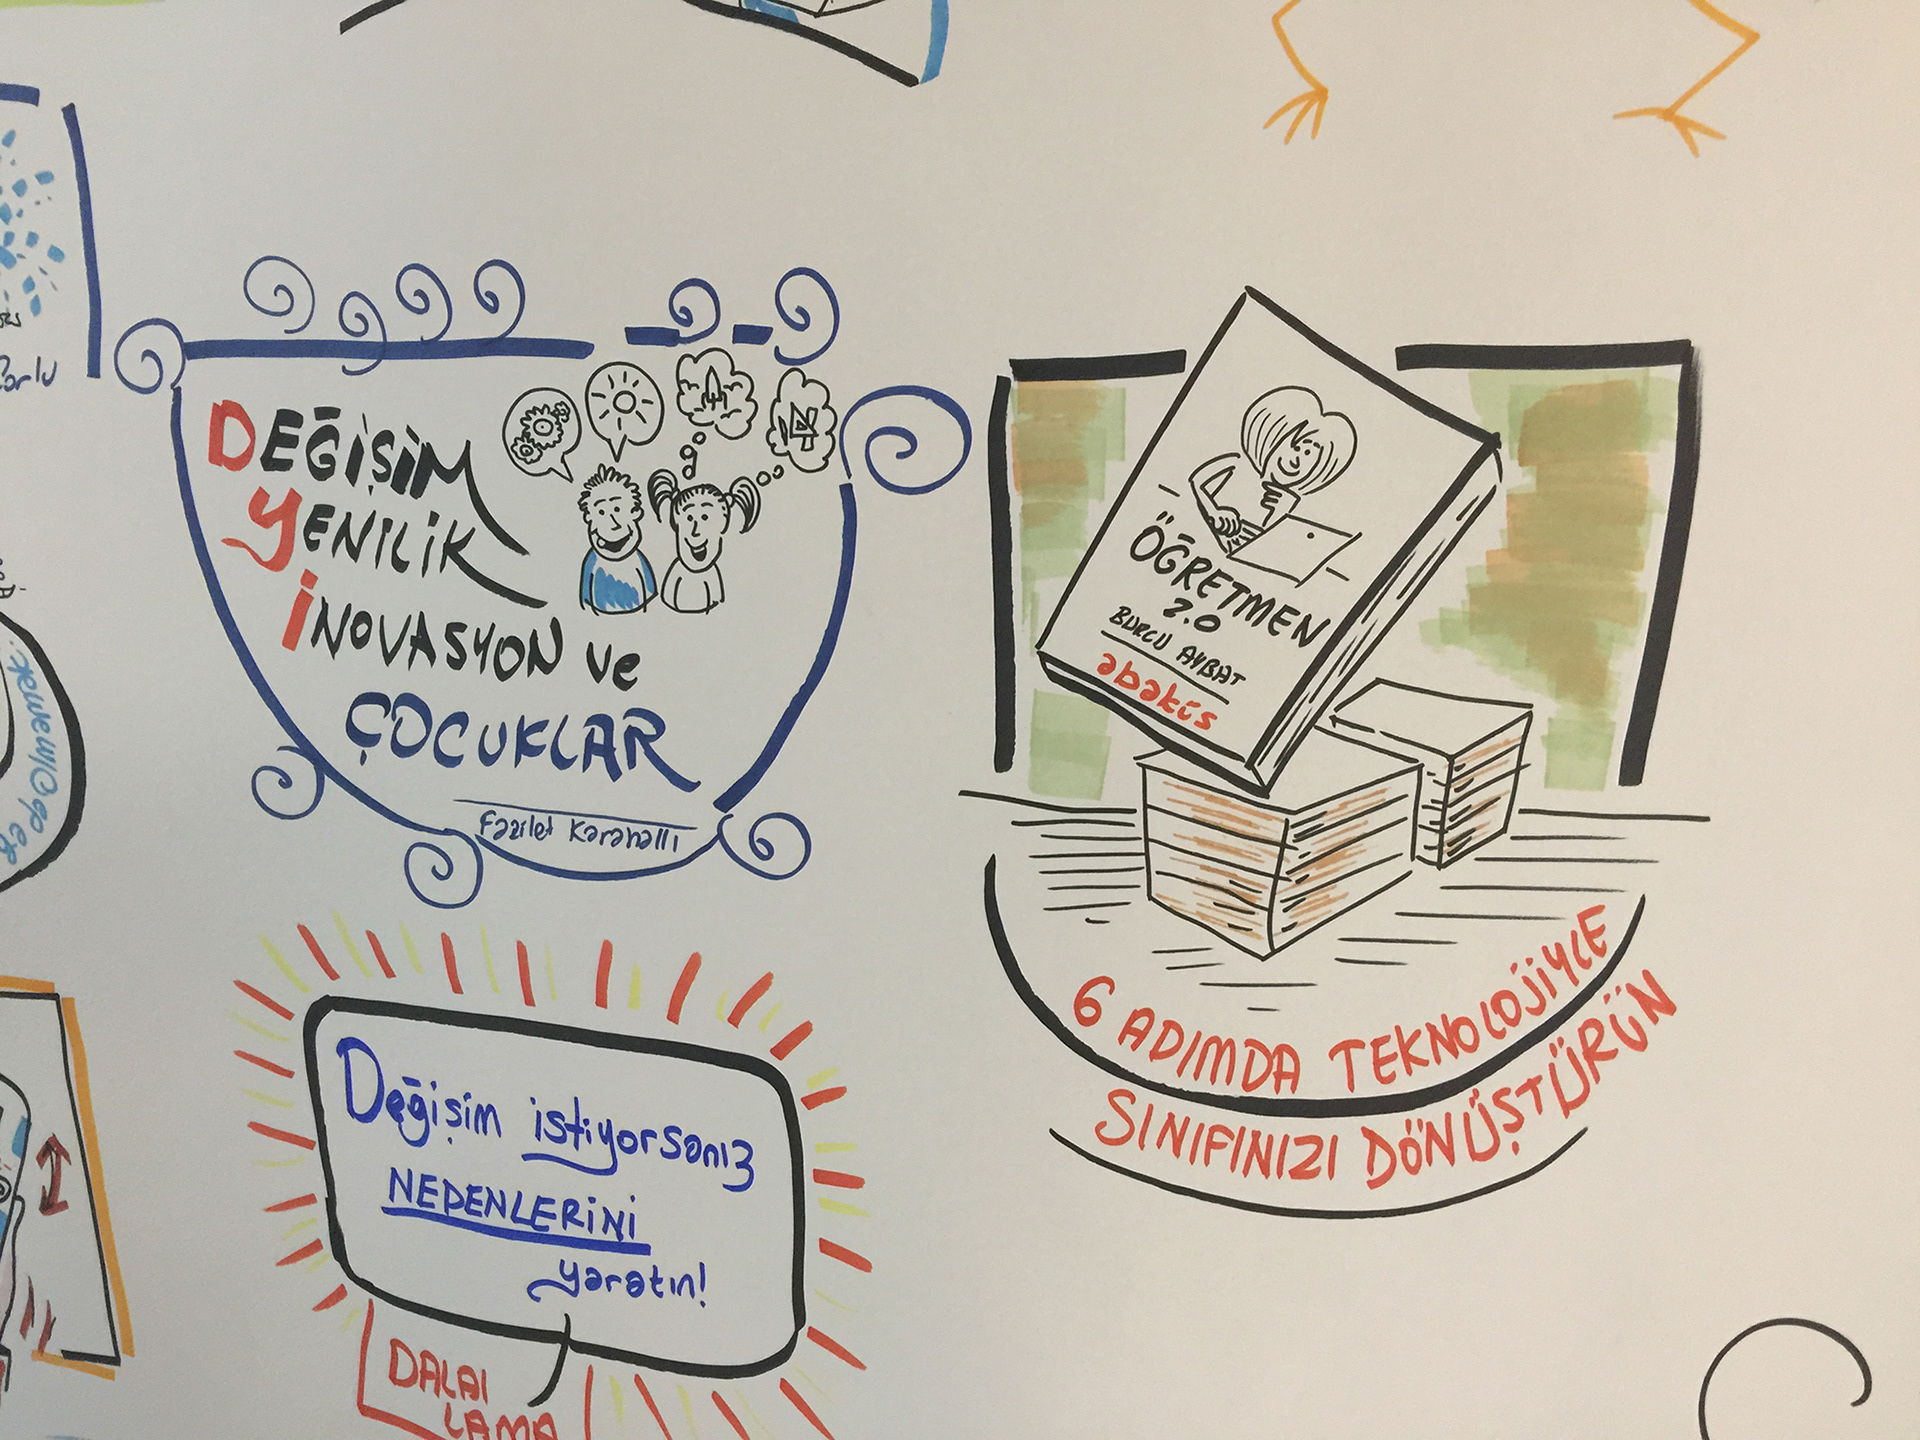 DEĞİŞİM
YENİLİK
İNOVASYON ve
ÇOCUKLAR
Fazilet Karahallı
Değişim istiyorsanız
NEDENLERİNİ
yaratın!
DALAI
LAMA
ÖĞRETMEN
2.0
BURCU AYBAT
abaküs
6 ADIMDA TEKNOLOJİYLE
SINIFINIZI DÖNÜŞTÜRÜN